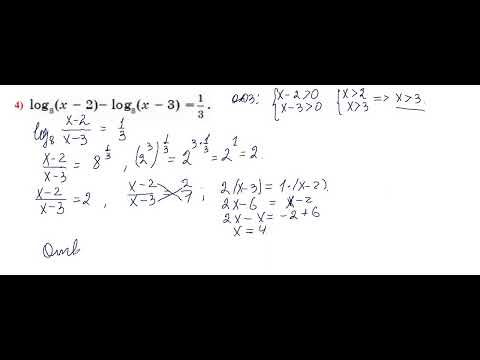 4) log₈(x − 2) − log₈(x − 3) = 1/3. ОДЗ: {x-2>0 x-3>0 {x>2 x>3 => x>3.
log₈ (x-2)/(x-3) = 1/3
(x-2)/(x-3) = 8^(1/3), (2³)^(1/3) = 2^(3·1/3) = 2¹ = 2.
(x-2)/(x-3) = 2, (x-2)/(x-3) = 2/1; 2(x-3) = 1·(x-2).
2x-6 = x-2
2x-x = -2+6
x=4